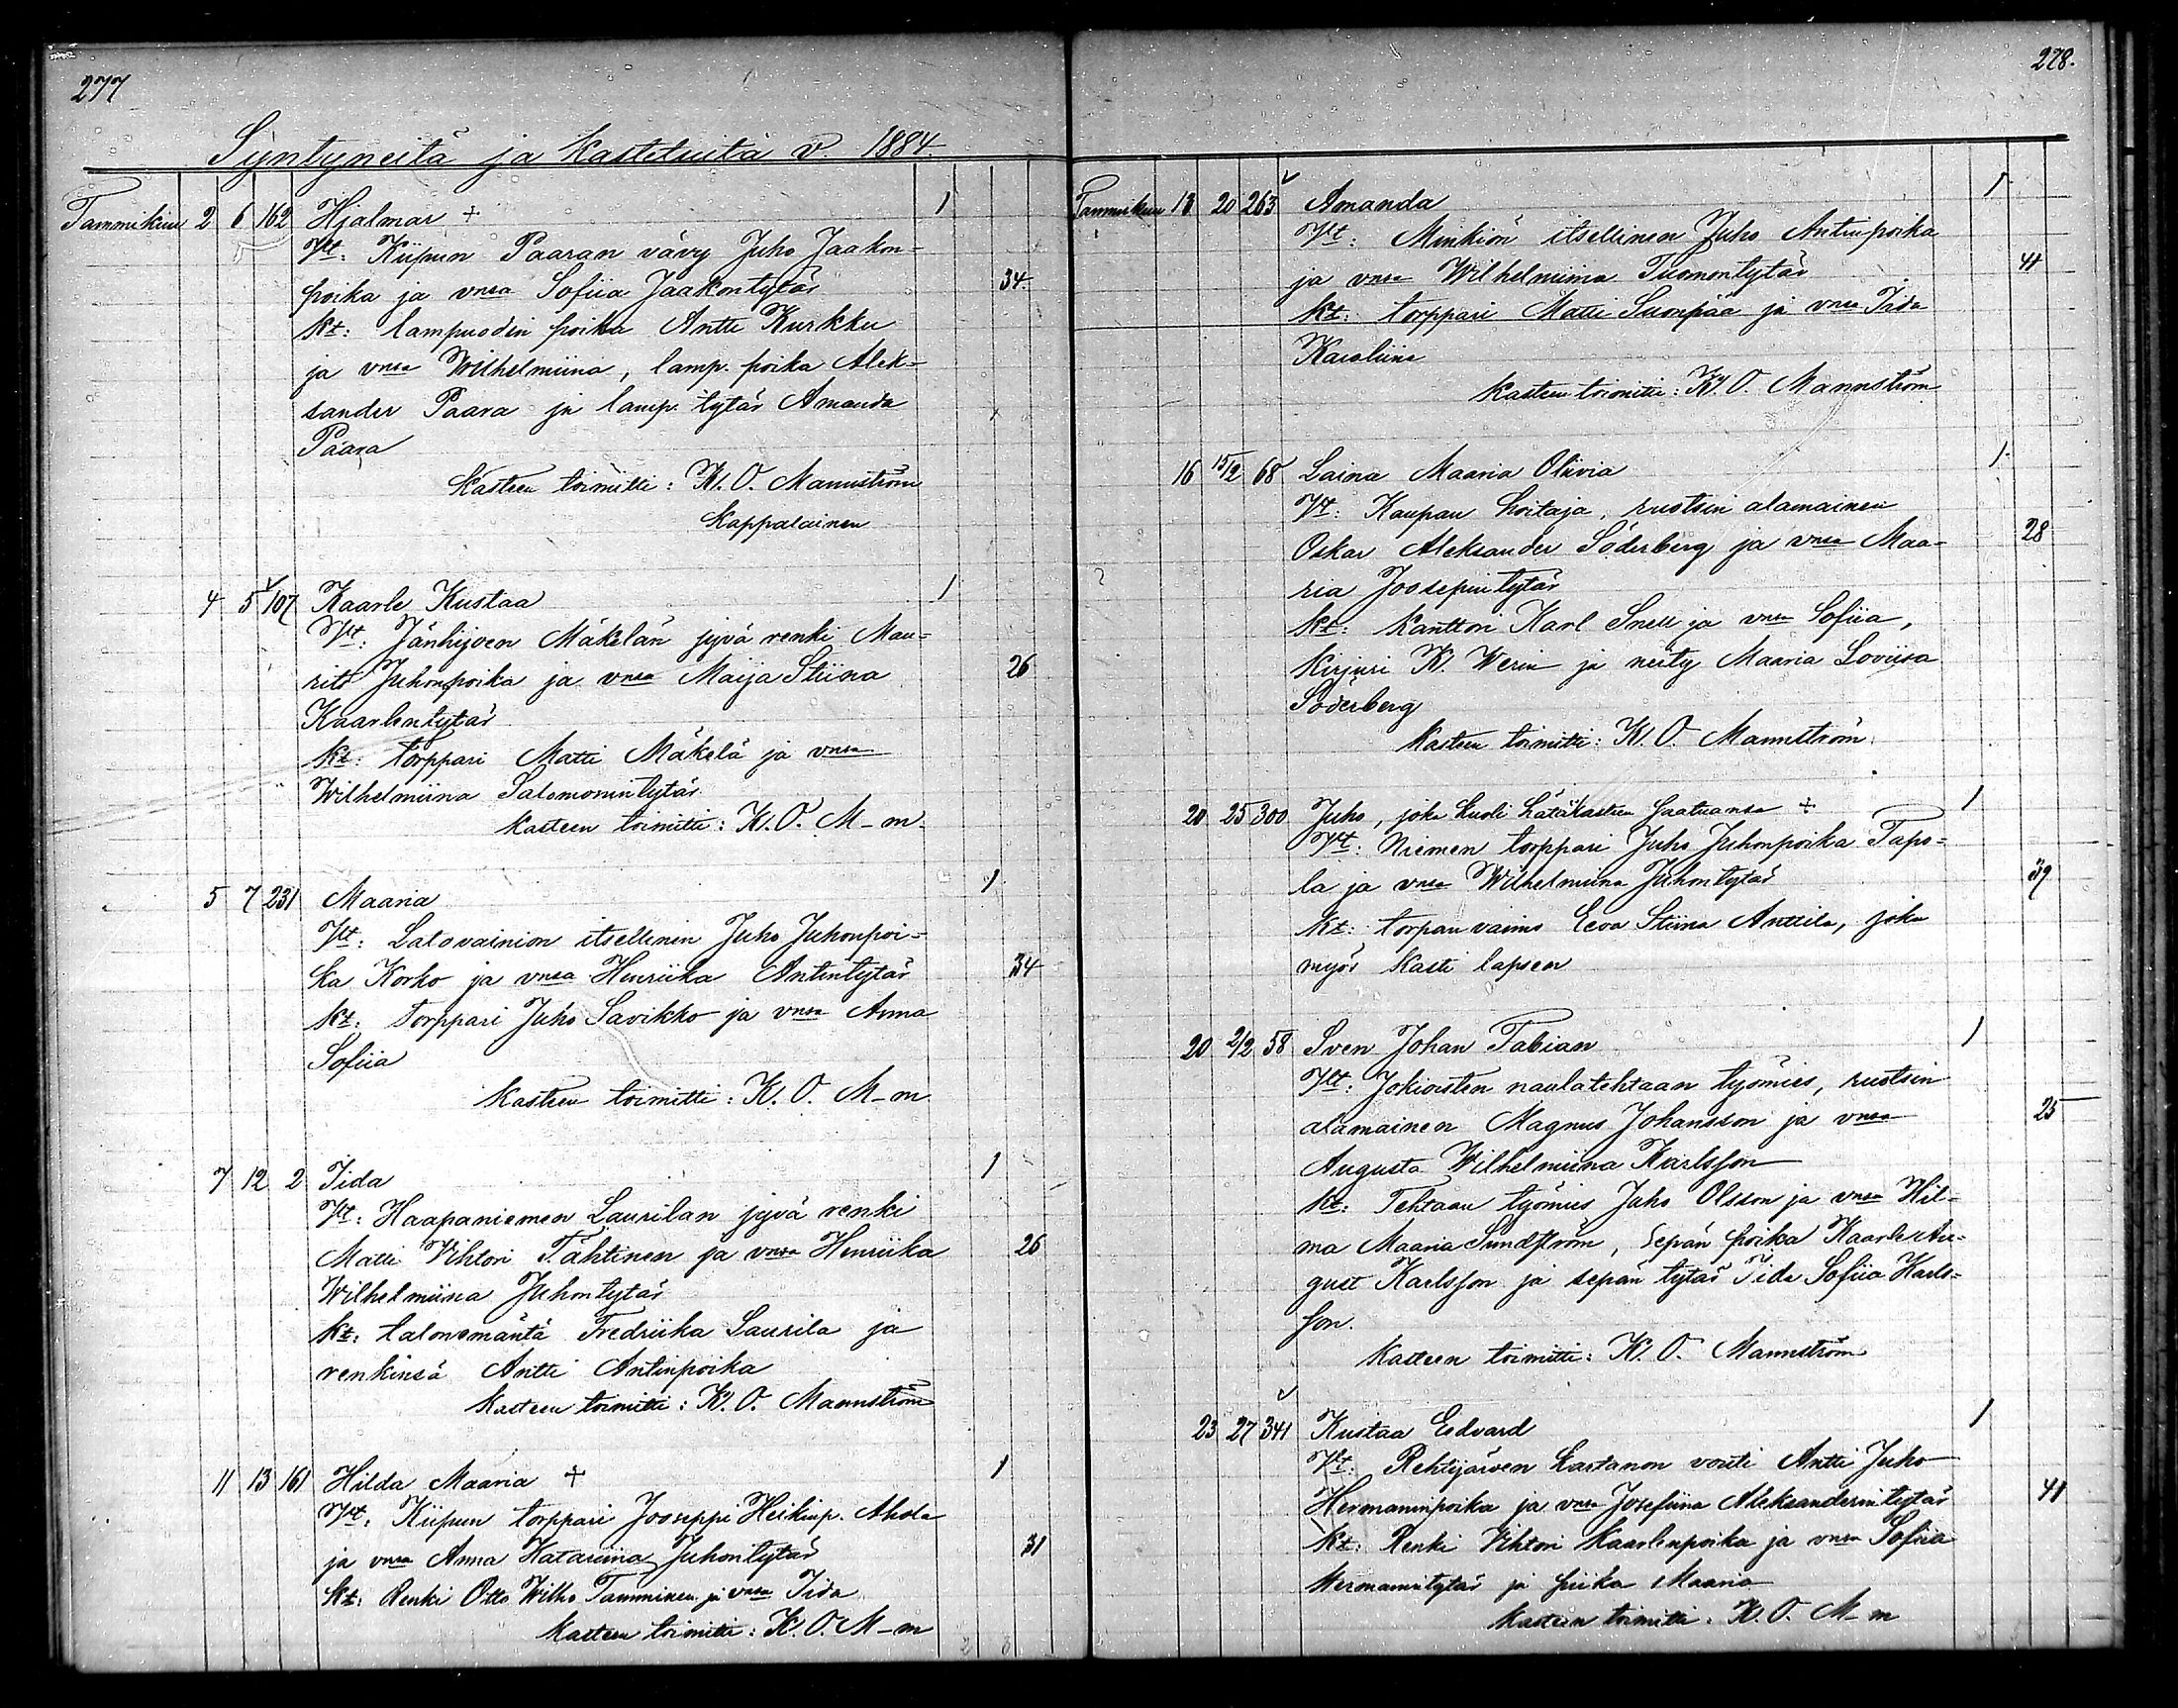 277
Syntyneitä ja kastetuita v. 1884.
Tammikuu 2 6 162 Hjalmar + 1
Vt: Kiipun Paaran vävy Juho Jaakon-
poika ja vnsa Sofiia Jaakontytär 34.
kt: lampuodin poika Antti Kurkku
ja vnsa Wilhelmiina, lamp. poika Alek-
sander Paara ja lamp. tytär Amanda
Paara
Kasteen toimitti: K. O. Mannström
Kappalainen
4 5 107 Kaarle Kustaa 1
Vt: Jänhijoen Mäkelän jyvä renki Mau-
rits Juhonpoika ja vnsa Maija Stiina 26
Kaarlentytär
kt: torppari Matti Mäkelä ja vnsa
Wilhelmiina Salomonintytär
Kasteen toimitti: K. O. M-m.
5 7 231 Maaria 1
Vt: Latovainion itsellinen Juho Juhonpoi-
ka Korko ja vnsa Henriika Antintytär 34
kt: Torppari Juho Savikko ja vnsa Anna
Sofiia
Kasteen toimitti: K. O. M-m
7 12 2 Iida 1
Vt: Haapaniemen Laurilan jyvä renki
Matti Vihtori Tähtinen ja vnsa Henriika 26
Wilhelmiina Juhontytär
kt: talonemäntä Fredriika Laurila ja
renkinsä Antti Antinpoika
Kasteen toimitti: K. O. Mannström
11 13 161 Hilda Maaria + 1
Vt: Kiipun torppari Jooseppi Heikinp. Ahola
ja vnsa Anna Katariina Juhontytär 31
kt: Renki Otto Wilho Tamminen ja vnsa Iida
Kasteen toimitti: K. O. M-m
278.
Tammikuu 13 20 263 Amanda 1
Vt: Minkiön itsellinen Juho Antinpoika
ja vnsa Wilhelmiina Tuomontytär 41
kt: torppari Matti Suonpää ja vnsa Iida
Karoliina
Kasteen toimitti: K. O. Mannström
16 15/2 68 Laina Maaria Oliivia 1
Vt: Kaupan hoitaja, ruotsin alamainen
Oskar Aleksander Söderberg ja vnsa Maa- 28
ria Joosepintytär
kt: Kanttori Karl Snell ja vnsa Sofiia,
Kirjuri K. Werin ja neity Maaria Loviisa
Söderberg
Kasteen toimitti: K. O. Mannström.
20 25 300 Juho, joka kuoli hätäkasteen saatuansa + 1
Vt: Niemen torppari Juho Juhonpoika Tapo-
la ja vnsa Wilhelmiina Juhontytär 39
kt: torpan vaimo Eeva Stiina Anttila, joka
myös kasti lapsen
20 2/2 58 Sven Johan Fabian 1
Vt: Jokioisten naulatehtaan työmies, ruotsin
alamainen Magnus Johansson ja vnsa 25
Augusta Wilhelmiina Karlsson
kt: Tehtaan työmies Juho Olsson ja vnsa Hil-
ma Maaria Sundström, Sepän poika Kaarle Au-
gust Karlsson ja sepän tytär Iida Sofiia Karls-
son.
Kasteen toimitti: K. O. Mannström
23 27 341 Kustaa Edvard 1
Vt: Rehtijärven kartanon vouti Antti Juho
Hermaninpoika ja vnsa Josefiina Aleksanderintytär 41
kt: Renki Vihtori Kaarlenpoika ja vnsa Sofiia
Hermannintytär ja piika Maaria
Kasteen toimitti: K. O. M-m